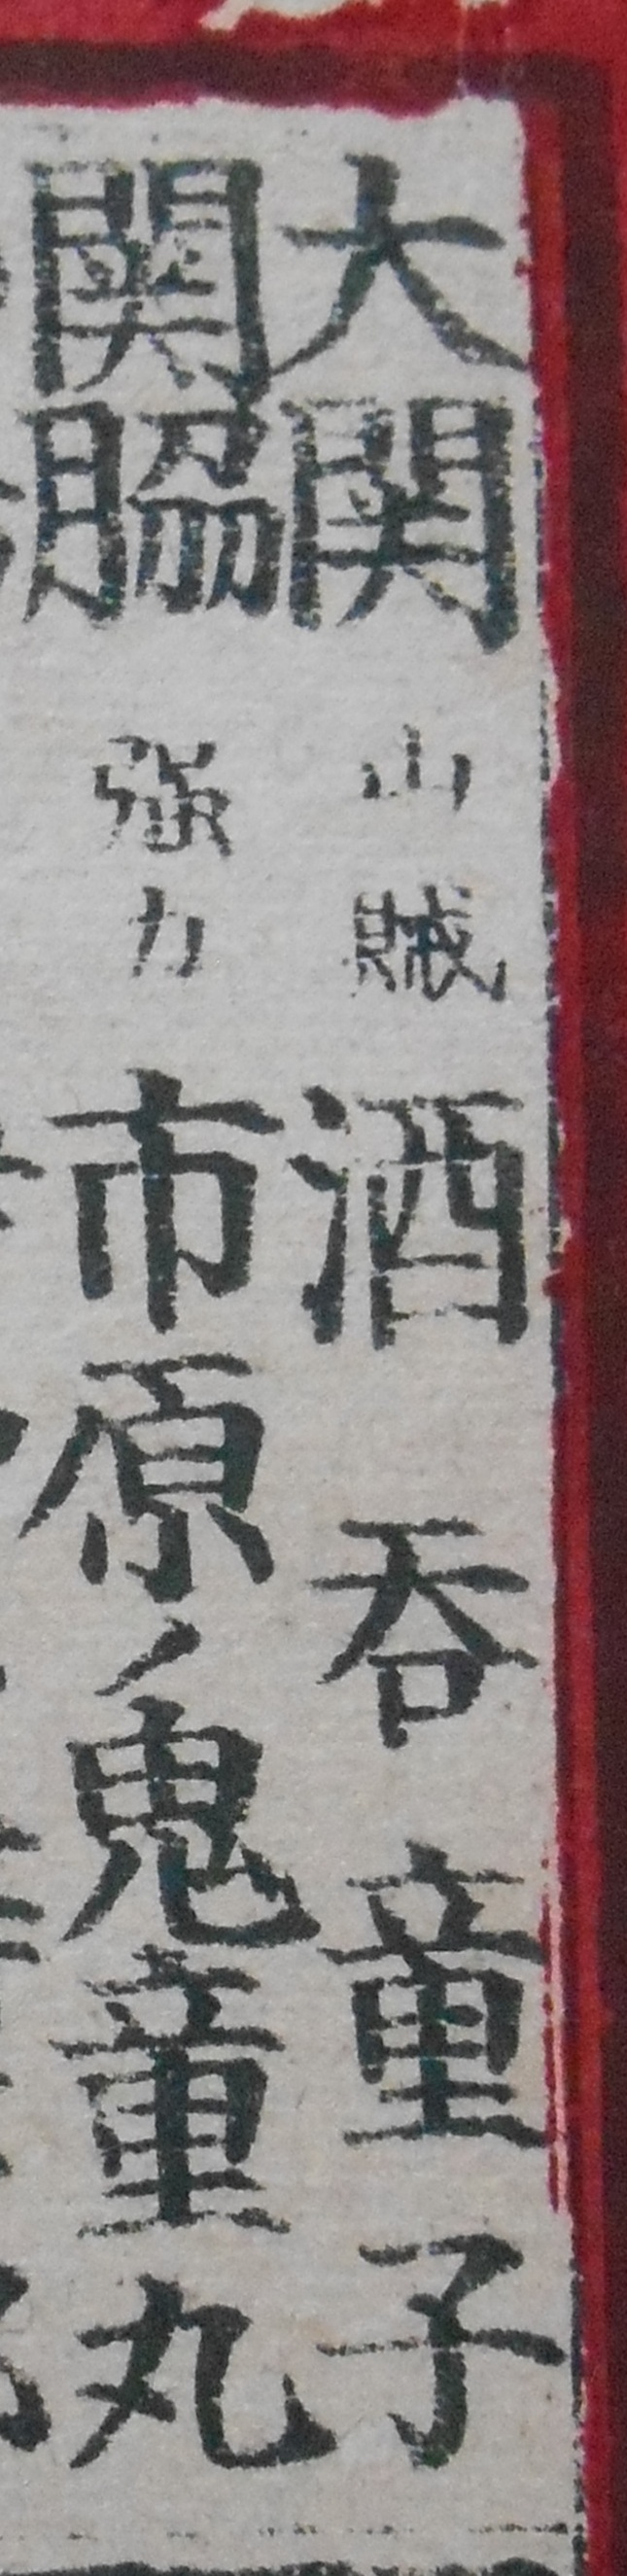 大関 山賊 酒呑童子
関脇 強力 市原ノ鬼童丸